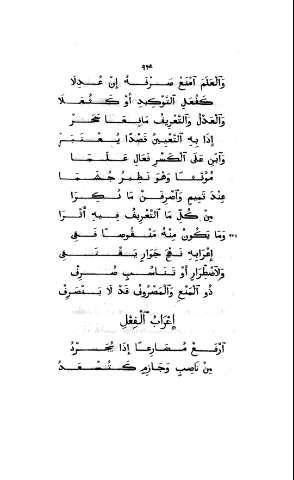 وَٱلْعَلَمَ ٱمْنَعْ صَرْفَهُ إِنْ عُدِلَا
كَفُعَلِ ٱلتَّوْكِيدِ أَوْ كَثُعَلَا
وَٱلْعَدْلُ وَٱلتَّعْرِيفُ مَانِعَا سَحَرْ
إِذَا بِهِ ٱلتَّعْيِينُ قَصْدًا يُعْتَبَرْ
وَٱبْنِ عَلَى ٱلْكَسْرِ فَعَالِ عَلَمَا
مُؤَنَّثًا وَهْوَ نَظِيرُ جُشَمَا
عِنْدَ تَمِيمٍ وَٱصْرِفَنْ مَا نُكِّرَا
مِنْ كُلِّ مَا ٱلتَّعْرِيفُ فِيهِ أَثَّرَا
وَمَا يَكُونُ مِنْهُ مَنْقُوصًا فَفِي
إِعْرَابِهِ نَهْجَ جَوَارٍ يَقْتَفِي
وَلِٱضْطِرَارٍ أَوْ تَنَاسُبٍ صُرِفْ
ذُو ٱلْمَنْعِ وَٱلْمَصْرُوفُ قَدْ لَا يَنْصَرِفْ
إِعْرَابُ ٱلْفِعْلِ
ٱرْفَعْ مُضَارِعًا إِذَا يُجَرَّدُ
مِنْ نَاصِبٍ وَجَازِمٍ كَتَسْعَدُ